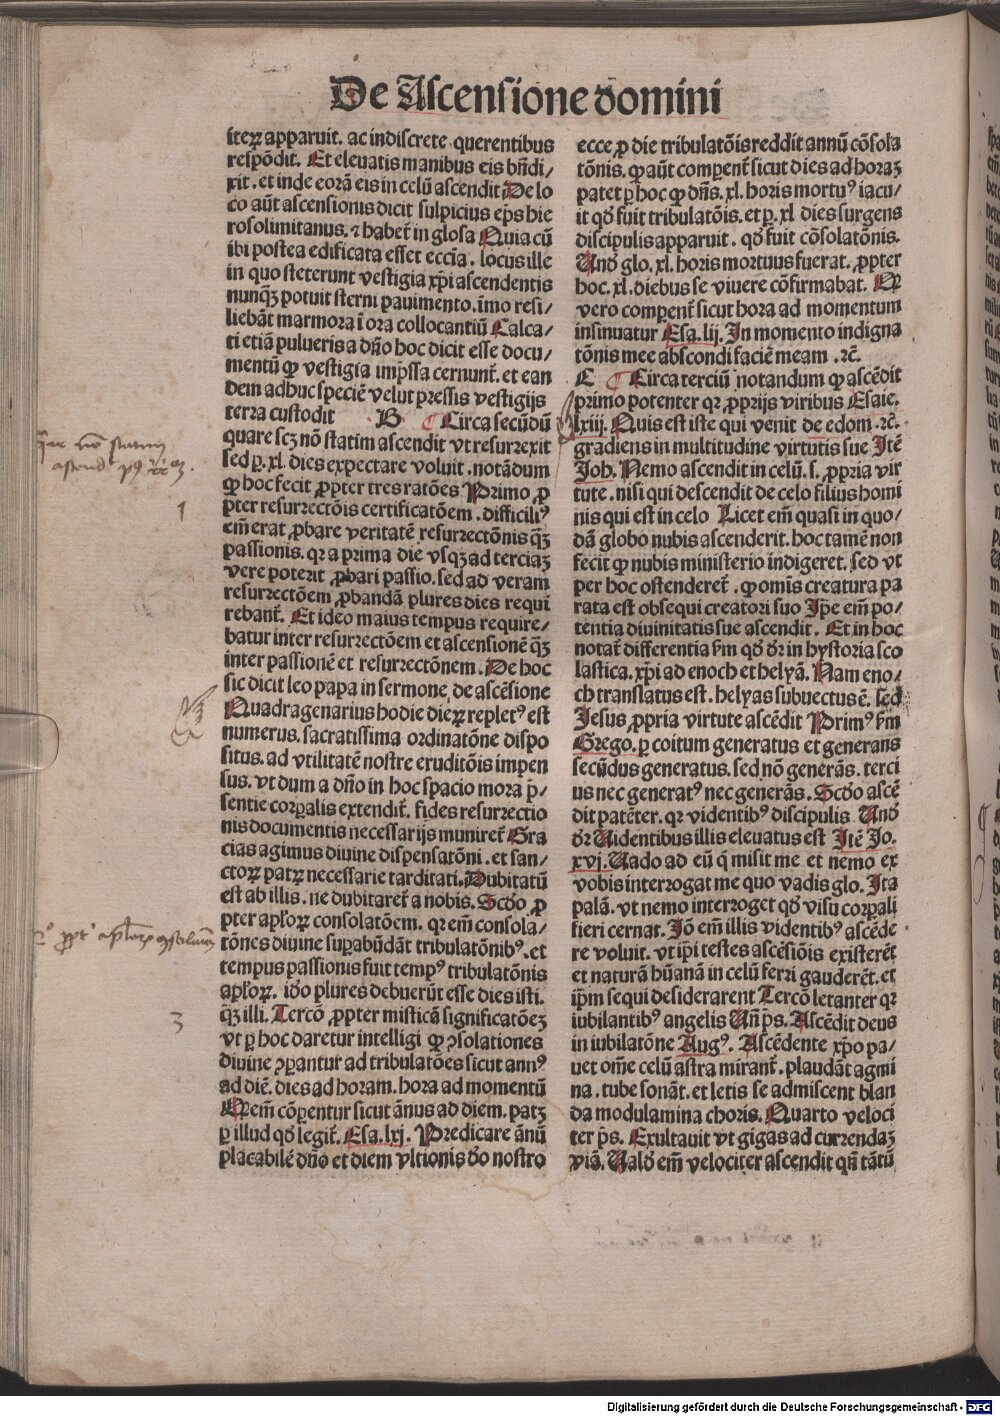 De Ascensione domini
iterꝝ apparuit. ac indiscrete querentibus
respōdit. Et eleuatis manibus eis bn̄di/
xit. et inde eorā eis in celū ascendit De lo
co aūt ascensionis dicit sulpicius ep̄s hie
rosolimitanus. ⁊ habet̄ in glosa Quia cū
ibi postea edificata esset ecc̄ia. locus ille
in quo steterunt vestigia xp̄i ascendentis
nunqꝫ potuit sterni pauimento. īmo resi/
liebāt marmora ī ora collocantiū Calca/
ti etiā pulueris a dn̄o hoc dicit esse docu/
mentū ꝙ vestigia imp̄ssa cernunt̄. et ean
dem adhuc speciē velut pressis vestigijs
terra custodit B ¶ Circa secūdū
quare scꝫ nō statim ascendit vt resurrexit
sed ꝑ. xl. dies expectare voluit. notādum
ꝙ hoc fecit ꝓpter tres ratōes Primo ꝓ
pter resurrectōis certificatōem. difficiliꝰ
em̄ erat ꝓbare veritatē resurrectōnis qꝫ
passionis. qꝛ a prima die vsqꝫ ad terciaꝫ
vere poterit ꝓbari passio. sed ad veram
resurrectōem ꝓbandā plures dies requi
rebant̄. Et ideo maius tempus require/
batur inter resurrectōem et ascensionē qꝫ
inter passionē et resurrectōnem. De hoc
sic dicit leo papa in sermone de ascēsione
Quadragenarius hodie dieꝝ repletꝰ est
numerus. sacratissima ordinatōne dispo
situs. ad vtilitatē nostre eruditōis impen
sus. vt dum a dn̄o in hoc spacio mora p̄/
sentie corꝑalis extendit̄. fides resurrectio
nis documentis necessarijs muniret̄ Gra
cias agimus diuine dispensatōni. et san/
ctoꝝ patꝝ necessarie tarditati. Dubitatū
est ab illis. ne dubitaret̄ a nobis. Scd̄o ꝓ
pter apl̄oꝝ consolatōem. qꝛ em̄ consola/
tōnes diuine suꝑabūdāt tribulatōnibꝰ. et
tempus passionis fuit tempꝰ tribulatōnis
apl̄oꝝ. id̄o plures debuerūt esse dies isti.
qꝫ illi. Tercō ꝓpter misticā significatōeꝫ
vt ꝑ hoc daretur intelligi ꝙ ꝯsolationes
diuine ꝯꝑantur ad tribulatōes sicut annꝰ
ad diē. dies ad horam. hora ad momentū
Qꝛ em̄ cōꝑentur sicut ānus ad diem. patꝫ
ꝑ illud qd̄ legit̄. Esa. lxj. Predicare ānū
placabilē dn̄o et diem vltionis d̄o nostro
ecce ꝓ die tribulatōis reddit annū cōsola
tōnis. ꝙ aūt comꝑent̄ sicut dies ad horaꝫ
patet ꝑ hoc ꝙ dn̄s. xl. horis mortuꝰ iacu/
it qd̄ fuit tribulatōis. et ꝑ. xl dies surgens
discipulis apparuit. qd̄ fuit cōsolatōnis.
Und̄ glo. xl. horis mortuus fuerat. ꝓpter
hoc. xl. diebus se viuere cōfirmabat. Qꝙ
vero comꝑent̄ sicut hora ad momentum
insinuatur Esa. lij. In momento indigna
tōnis mee abscondi faciē meam. ꝛc̄.
C ¶ Circa terciū notandum ꝙ ascēdit
primo potenter qꝛ ꝓprijs viribus Esaie.
lxiij. Quis est iste qui venit de edom. ꝛc̄.
gradiens in multitudine virtutis sue Itē
Joh. Nemo ascendit in celū. s. ꝓpria vir
tute. nisi qui descendit de celo filius homi
nis qui est in celo Licet em̄ quasi in quo/
dā globo nubis ascenderit. hoc tamē non
fecit ꝙ nubis ministerio indigeret. sed vt
per hoc ostenderet̄. ꝙ omīs creatura pa
rata est obsequi creatori suo Ip̄e em̄ po/
tentia diuinitatis sue ascendit. Et in hoc
notat̄ differentia s̄m qd̄ dr̄ in hystoria sco
lastica. xp̄i ad enoch et helyā. Nam eno/
ch translatus est. helyas subuectus ē. sed
Jesus ꝓpria virtute ascēdit Primꝰ s̄m
Grego. ꝑ coitum generatus et generans
secūdus generatus. sed nō generās. terci
us nec generatꝰ nec generās. Scd̄o ascē
dit patēter. qꝛ videntibꝰ discipulis Und̄
dr̄ Uidentibus illis eleuatus est Itē Jo.
xvj. Uado ad eū q̄ misit me et nemo ex
vobis interrogat me quo vadis glo. Ita
palā. vt nemo interroget qd̄ visu corꝑali
fieri cernat. Jō em̄ illis videntibꝰ ascēde
re voluit. vt ip̄i testes ascēsiōis existerēt
et naturā hūanā in celū ferri gauderēt. et
ip̄m sequi desiderarent Tercō letanter qꝛ
iubilantibꝰ angelis Un̄ p̄s. Ascēdit deus
in iubilatōne Augꝰ. Ascēdente xp̄o pa/
uet om̄e celū astra mirant̄. plaudāt agmi
na. tube sonāt. et letis se admiscent blan
da modulamina choris. Quarto veloci
ter p̄s. Exultauit vt gigas ad currendaꝫ
viā. Uald̄ em̄ velociter ascendit qn̄ tātū
1
3
Digitalisierung gefördert durch die Deutsche Forschungsgemeinschaft - DFG